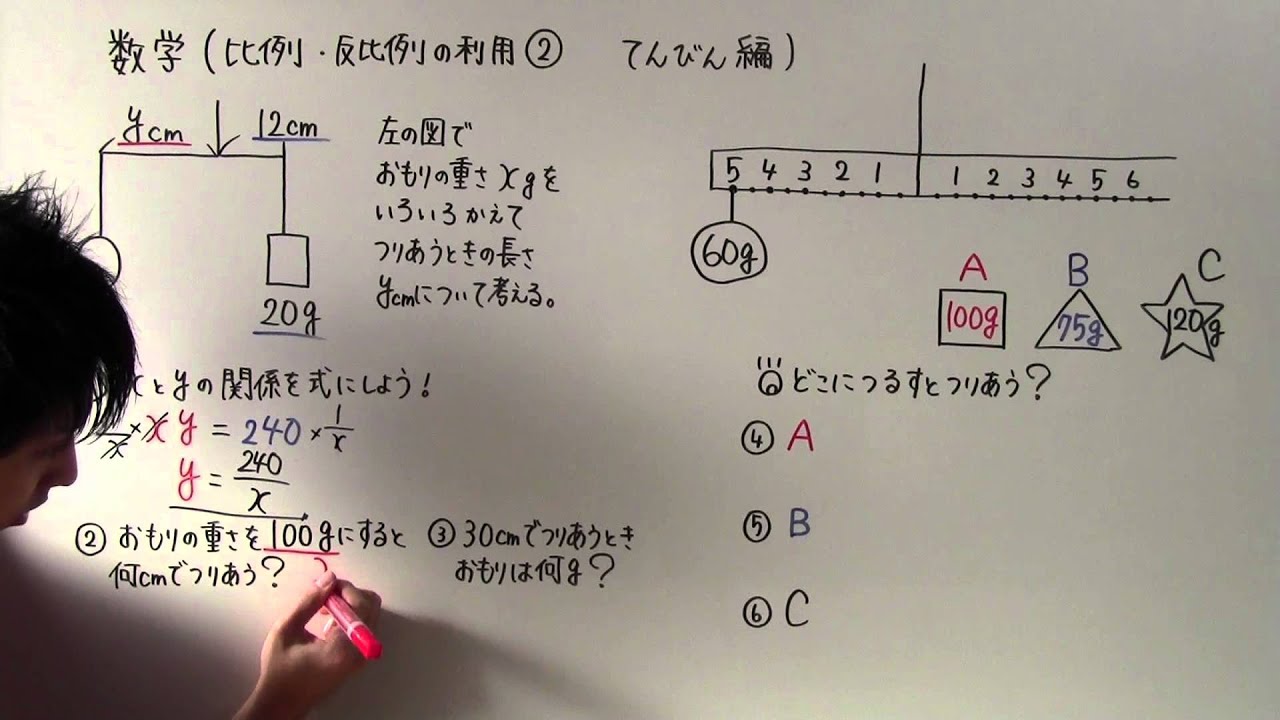 数学(比例・反比例の利用② てんびん編)
ycm
12cm
20g
左の図で
おもりの重さxgを
いろいろかえて
つりあうときの長さ
ycmについて考える。
xとyの関係を式にしよう!
xy = 240 × 1/x
y = 240/x
② おもりの重さを100gにすると
何cmでつりあう?
③ 30cmでつりあうとき
おもりは何g?
5 4 3 2 1 1 2 3 4 5 6
60g
A
100g
B
75g
C
120g
どこにつるすとつりあう?
④ A
⑤ B
⑥ C